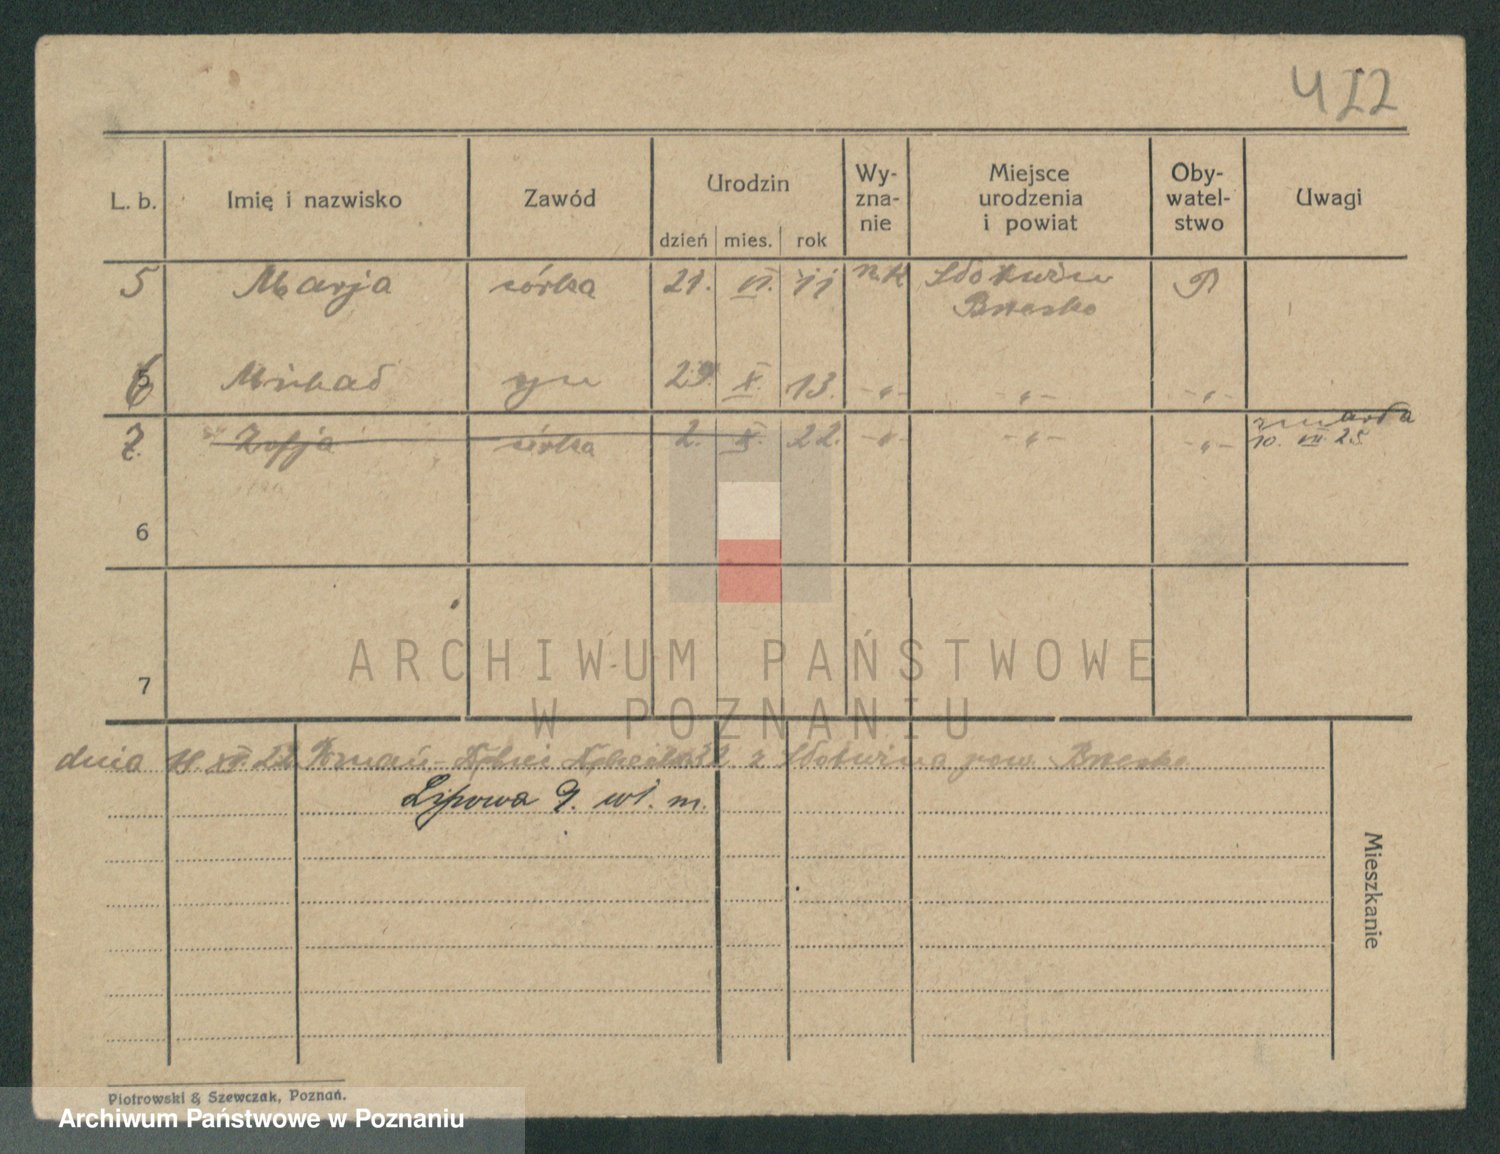 422
L. b. Imię i nazwisko Zawód Urodzin dzień mies. rok Wy-zna-nie Miejsce urodzenia i powiat Oby-watel-stwo Uwagi
5 Marja córka 21. VI. 11 Słotwina
Brzesko
6 Michał syn 29. X. 13. -„- -„- -„-
7. Zofja córka 2. 22. -„- -„- -„- zmarła
10. VII. 25.
6
7
ARCHIWUM PAŃSTWOWE
W POZNANIU
dnia 22. Poznań z Słotwina pow. Brzesko
Lipowa 9. wł. m.
Mieszkanie
Piotrowski & Szewczak, Poznań.
Archiwum Państwowe w Poznaniu